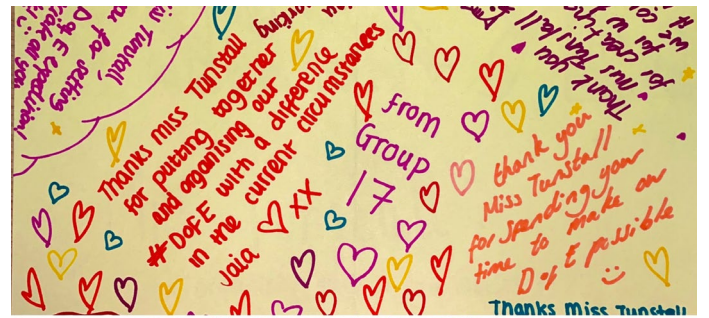 Miss Tunstall,
for setting
D of E expedition!
Thanks miss Tunstall
for putting together
and organising our
# DofE with a difference
in the current circumstances
Jaia
XX
from
Group
17
Thank you
miss Tunstall
for creating
thank you
Miss Tunstall
for spending your
time to make our
D of E possible
Thanks Miss Tunstall